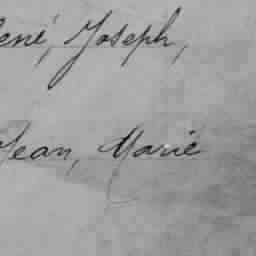 René, Joseph,
Jean, Marie